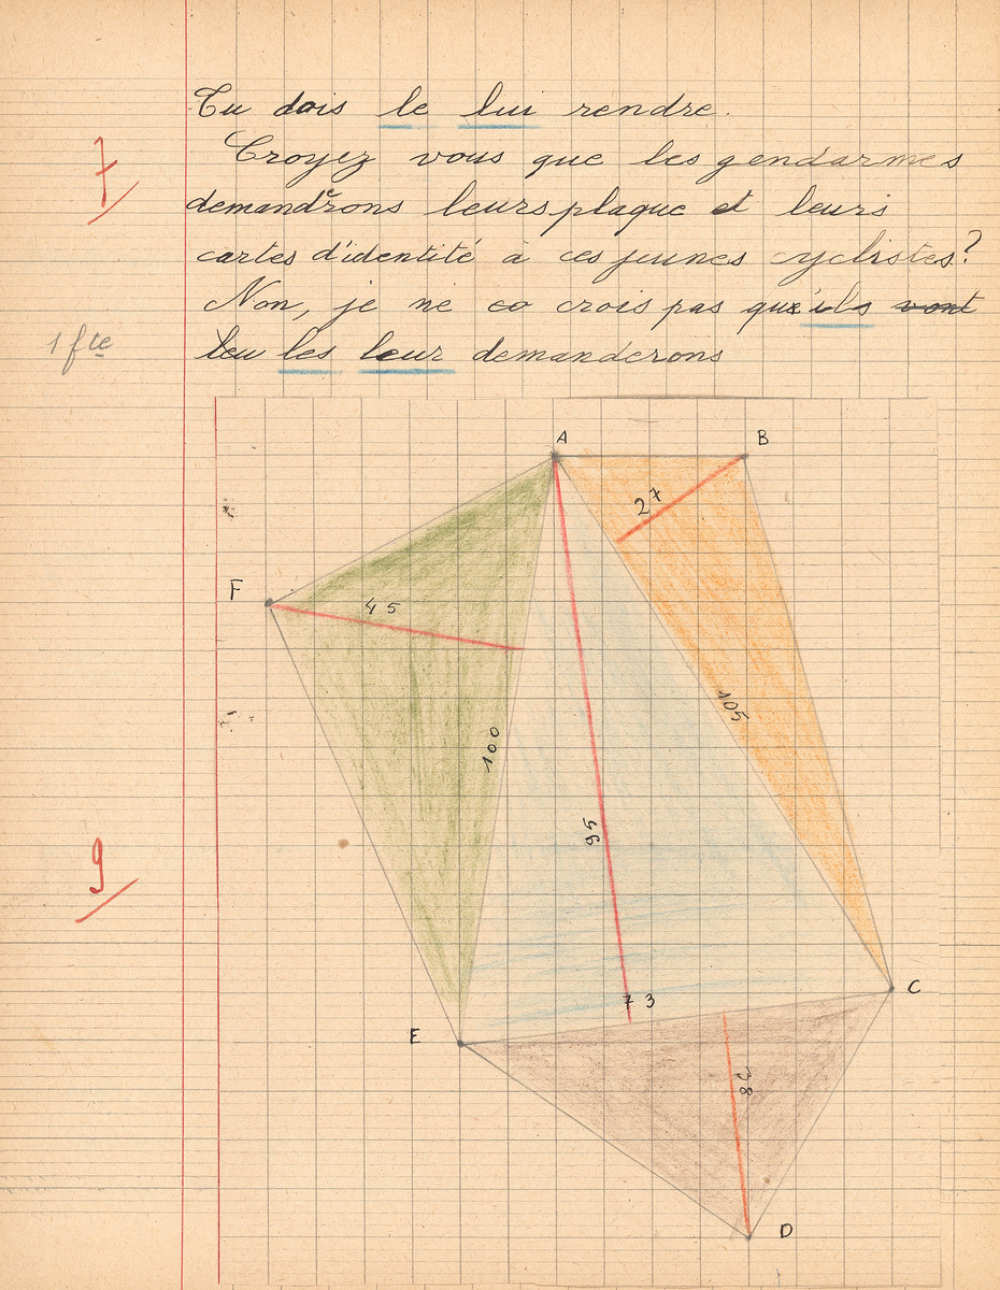 Tu dois le lui rendre.
7
Croyez vous que les gendarmes
demanderons leurs plaque et leurs
cartes d'identité à ces jeunes cyclistes?
Non, je ne co crois pas qu'ils vont
1 fte
leu les leur demanderons
A
B
27
F
45
105
100
95
9
73
C
E
38
D